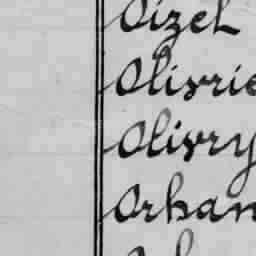 Oizel
Olivrie
Olivry
Orhan